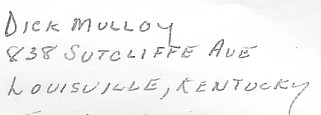 DICK MULLOY
838 SUTCLIFFE AVE
LOUISVILLE, KENTUCKY